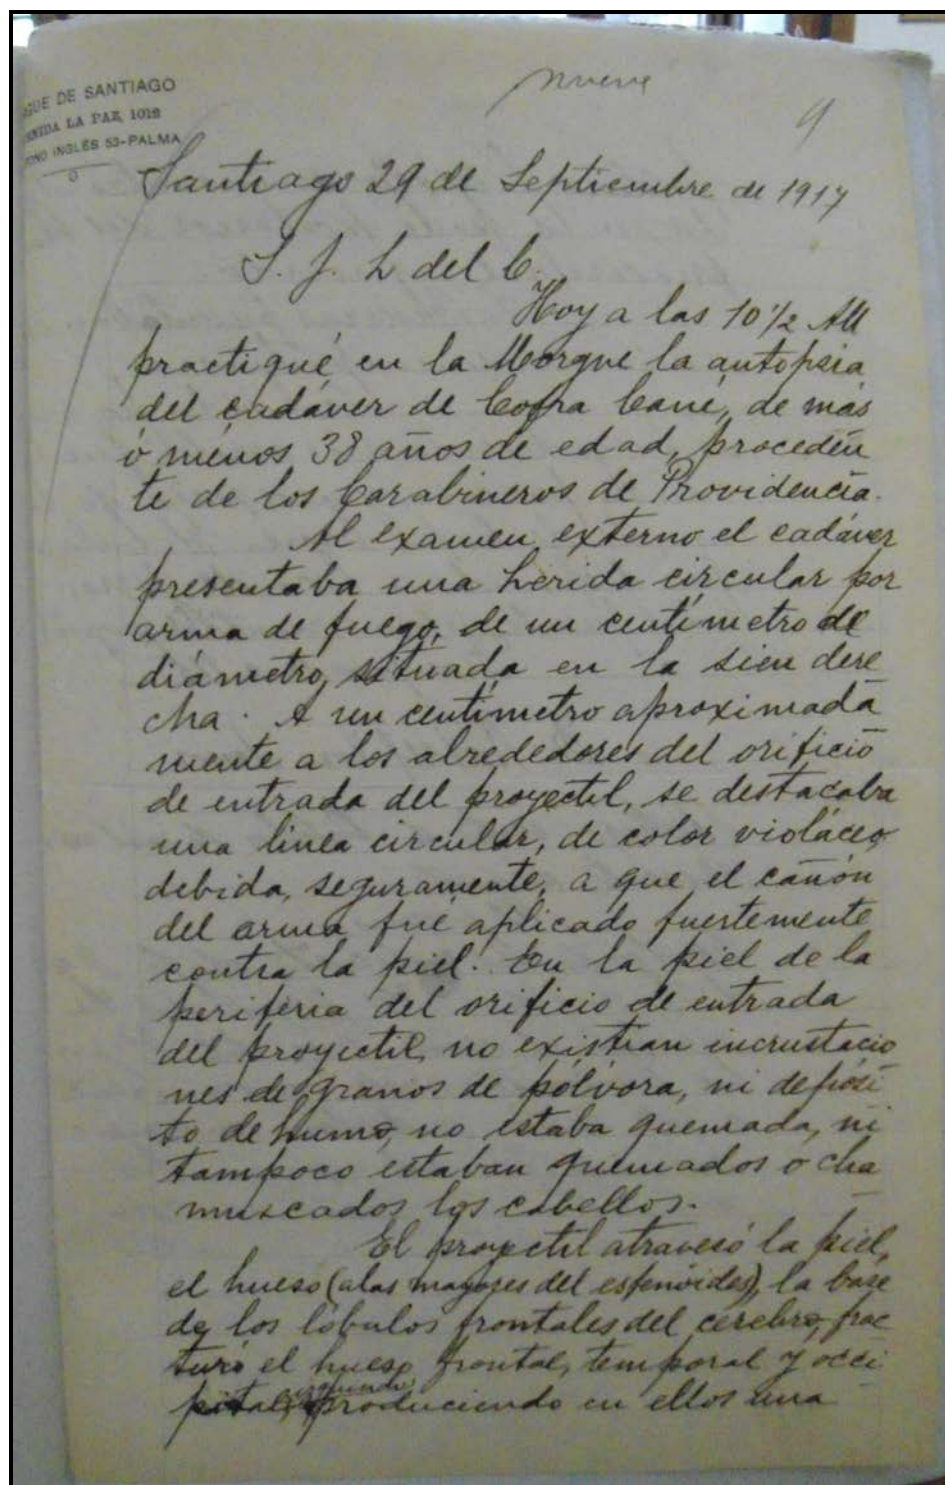 GUE DE SANTIAGO
NIDA LA PAZ, 1012
ONO INGLÉS 53-PALMA
nueve
9
Santiago 29 de Septiembre de 1917
S. J. L del C.
Hoy a las 10 1/2 AM
practiqué en la Morgue la autopsia
del cadáver de Cofra Cané, de más
ó menos 38 años de edad, proceden
te de los Carabineros de Providencia.
Al examen externo el cadáver
presentaba una herida circular por
arma de fuego, de un centímetro de
diámetro, situada en la sien dere
cha. A un centímetro aproximada
mente a los alrededores del orificio
de entrada del proyectil, se destacaba
una linea circular, de color violáceo,
debida, seguramente, a que el cañón
del arma fué aplicado fuertemente
contra la piel. En la piel de la
periferia del orificio de entrada
del proyectil no existian incrustacio
nes de granos de pólvora, ni deposi
to de humo, no estaba quemada, ni
tampoco estaban quemados o cha
muscados los cabellos.
El proyectil atravesó la piel,
el hueso (alas mayores del esfenoides), la base
de los lóbulos frontales del cerebro, frac
turó el hueso frontal, temporal y occi
pital izquierdo produciendo en ellos una